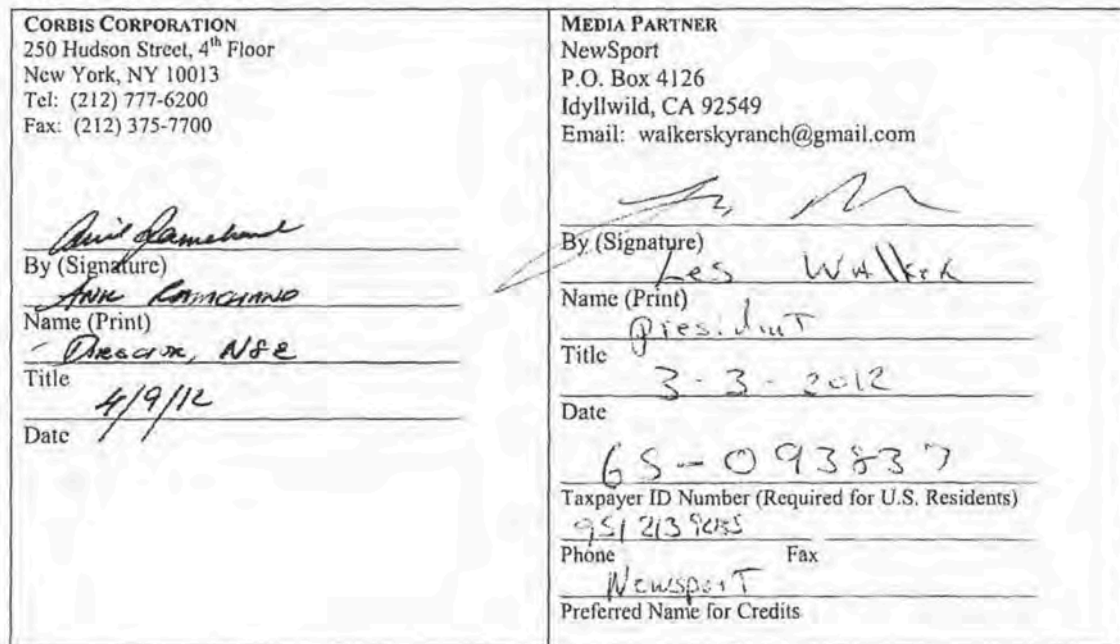 CORBIS CORPORATION
250 Hudson Street, 4th Floor
New York, NY 10013
Tel: (212) 777-6200
Fax: (212) 375-7700
By (Signature)
Name (Print)
Director, NSE
Title
4/9/12
Date
MEDIA PARTNER
NewSport
P.O. Box 4126
Idyllwild, CA 92549
Email: walkerskyranch@gmail.com
By (Signature)
Les Walker
Name (Print)
President
Title
3-3-2012
Date
65-093837
Taxpayer ID Number (Required for U.S. Residents)
Phone Fax
Newsport
Preferred Name for Credits